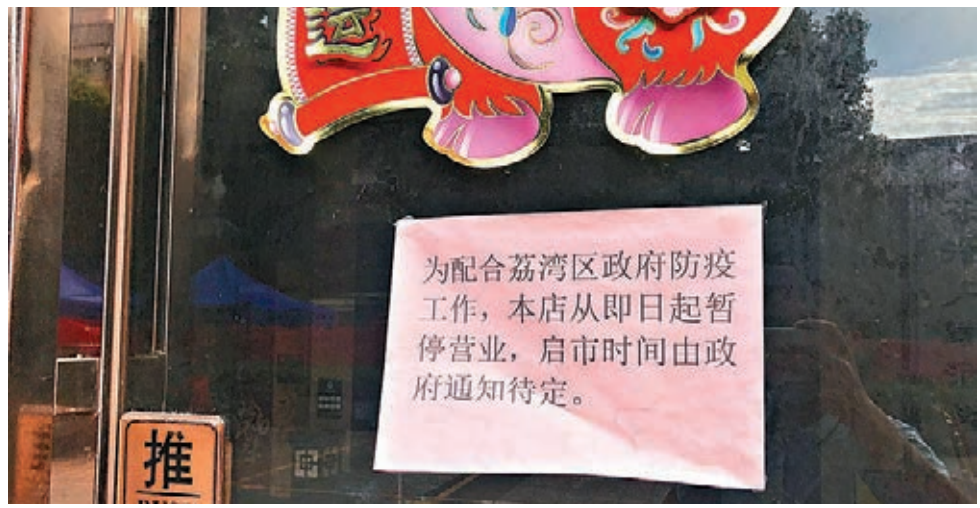 为配合荔湾区政府防疫
工作，本店从即日起暂
停营业，启市时间由政
府通知待定。
推